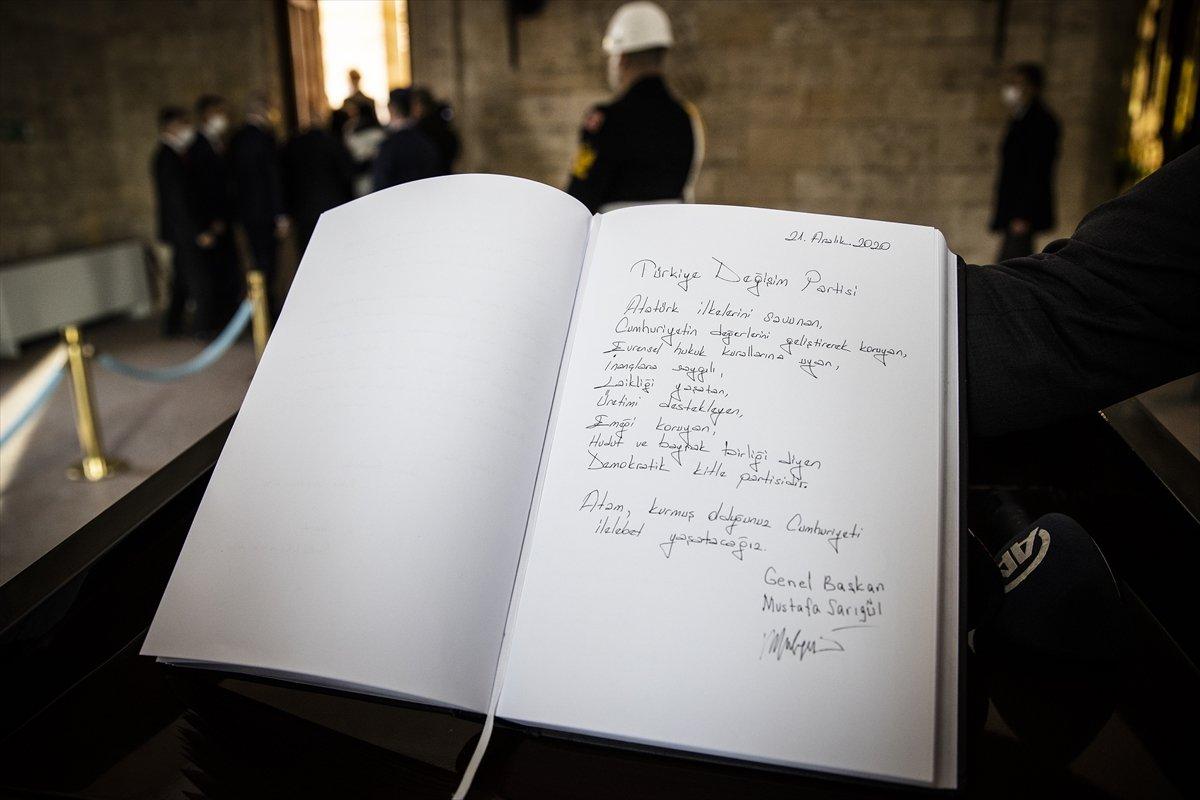 21. Aralık. 2020
Türkiye Değişim Partisi
Atatürk ilkelerini savunan,
Cumhuriyetin değerlerini geliştirerek koruyan,
Evrensel hukuk kurallarına uyan,
İnançlara saygılı,
Laikliği yaşatan,
Üretimi destekleyen,
Emeği koruyan,
Hudut ve bayrak birliği diyen
Demokratik kitle partisidir.
Atam, kurmuş olduğunuz Cumhuriyeti
ilelebet yaşatacağız.
Genel Başkan
Mustafa Sarıgül
AA